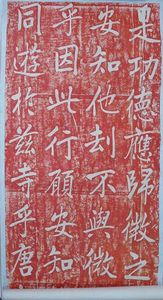 是功德應歸微之
安知他刦不與微
乎因此行願安知
同遊於兹寺乎唐